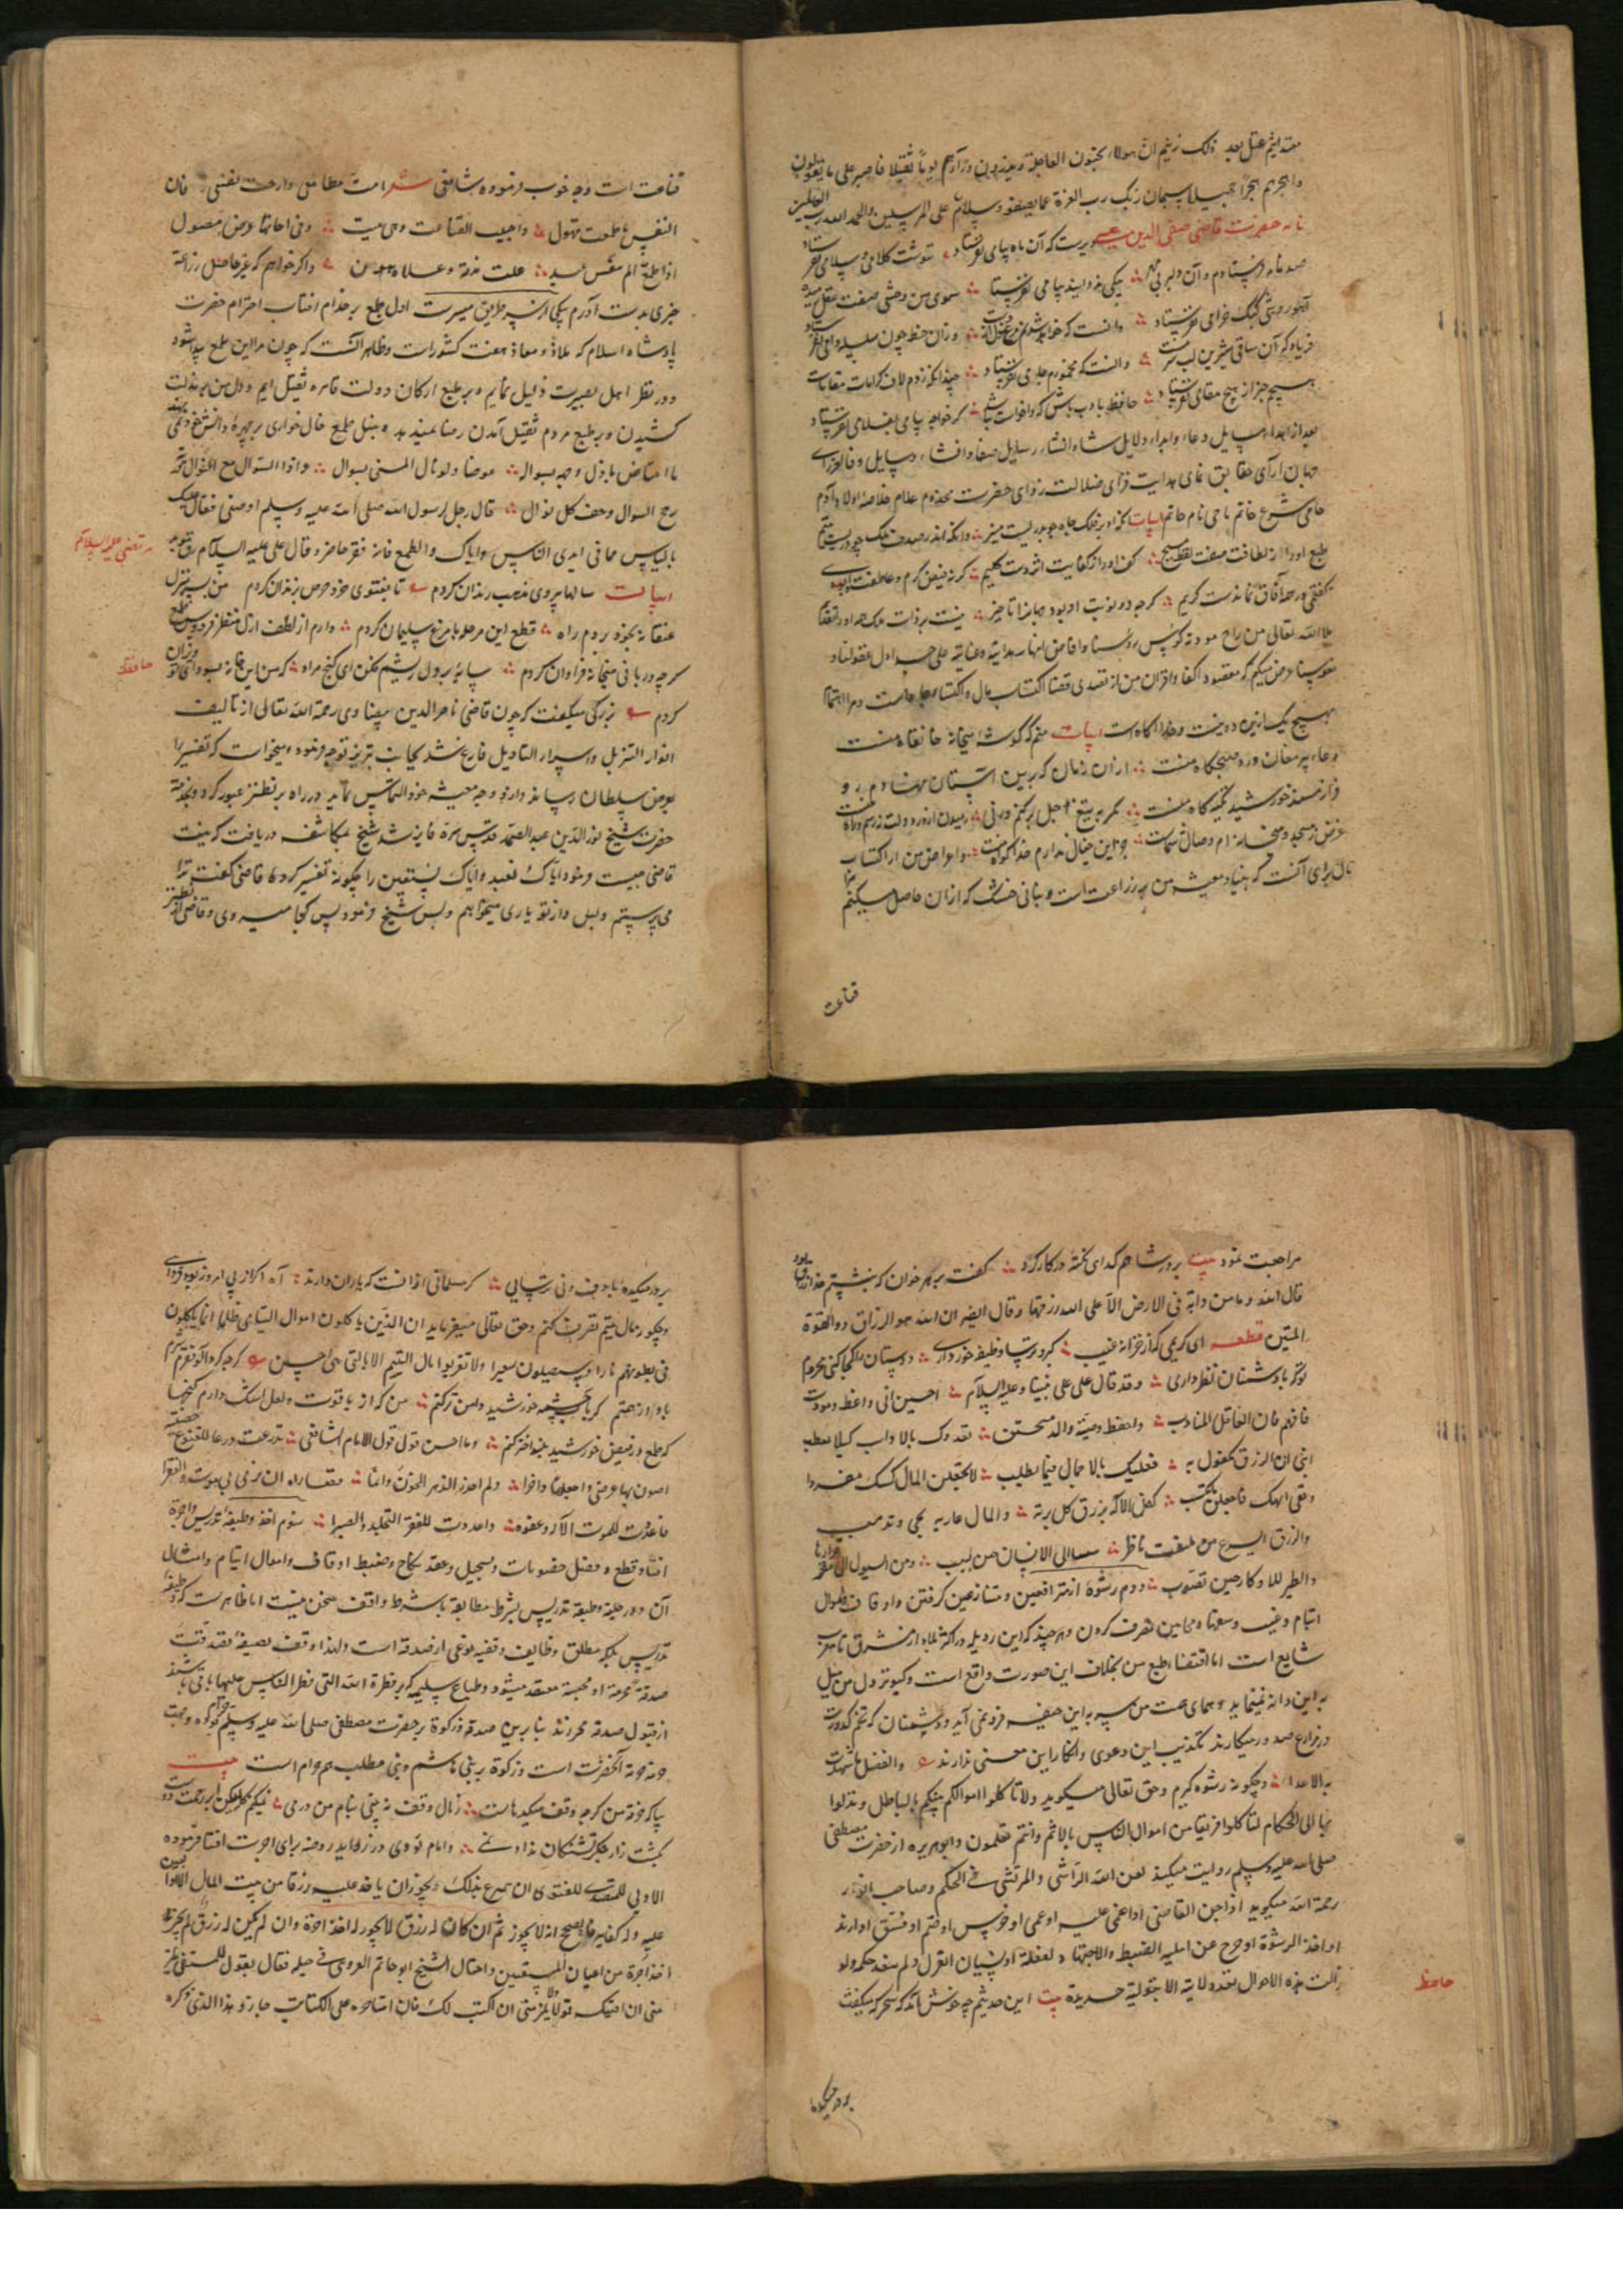 معتد اثیم عتل بعد ذلک زنیم ان هولاء یحبون العاجلة و یذرون وراءهم یوما ثقیلا فاصبر علی ما یقولون
واهجرهم هجرا جمیلا سبحان ربک رب العزة عما یصفون و سلام علی المرسلین والحمد لله رب العالمین
نامه حضرت قاضی صفی الدین عیسی دیریست که آن ماه پیامی نفرستاد ننوشت کلامی و سلامی نفرستاد
صد نامه فرستادم و آن دلبر بی مهر پیکی ندوانید و پیامی نفرستاد سوی من وحشی صفت عقل رمیده
آهو روشی کبک خرامی نفرستاد دانست که خواهد شدنم مرغ دل از دست وزان خط چون سلسله دامی نفرستاد
فریاد که آن ساقی شیرین لب سرمست دانست که مخمورم و جامی نفرستاد چندانکه زدم لاف کرامات و مقامات
هیچم خبر از هیچ مقامی نفرستاد حافظ بادب باش که واخواست نباشد گر خواجه پیامی بغلامی نفرستاد
بعد از اهداء رسایل دعا و ابداء دلایل ثنا و انشاء رسایل صفا و افشاء وسایل وفا بر رای
جهان آرای حقایق نمای هدایت فزای ضلالت زدای حضرت مخدوم اعلام خلاصه اولاد آدم
حامی شرع خاتم ماحی نام حاتم ابیات آنکه او بر فلک جاه چو بدریست منیر وانکه اندر صدف ملک چو دریست یتیم
طبع او را از لطافت صفت نطق مسیح کف او را از کفایت اثر دست کلیم گر نه فیض کرم و عاطفت او بودی
نگفتی در همه آفاق نماندست کریم
ملا الله تعالی من راح مودته کوس رؤسنا وافاض انهار هدایته و عنایته علی جداول عقولنا و
نفوسنا عرض میکنم که مقصود اکفا و اقران من از تصدی قضا اکتساب مال و اکتساب جاه است و مرا التفات
بهیچ یک ازین دو نیست و خدا آگاه است ابیات منم که گوشه میخانه خانقاه منست
دعاء پیر مغان ورد صبحگاه منست از آن زمان که برین آستان نهادم رو
فراز مسند خورشید تکیه گاه منست مگر به تیغ اجل برکنم ورنی رمیدن از در دولت نه رسم و راه منست
غرض ز مسجد و میخانه ام وصال شماست جز این خیال ندارم خدا گواه منست و اعراض من از اکتساب
مال برای آنست که بنیاد معیشت من بر زراعت است و بنانی خشک که از آن حاصل میکنم
قناعت
قناعت است و چه خوب فرموده شافعی شعر امت مطامعی وارحت نفسی فان
النفس ما طمعت تهون واحییت القناعت وهی میت وفی احیائها عرض مصون
اذا طمع الم بنفس عبد علت مذلة و علاه هون و اگر خواهم که غیر حاصل زراعت
چیزی بدست آرم یکی از سه طریق میسرست اول طمع بر خدام آفتاب احترام حضرت
پادشاه اسلام که ملاذ و معاذ هفت کشورست و ظاهر آنست که چون مرا این طمع پیدا شود
در نظر اهل بصیرت ذلیل نمایم و بر طبع ارکان دولت قاهره ثقیل آیم و دل من بمذلت
کشیدن و بر طبع مردم ثقیل آمدن رضا نمیدهد و بنیل طمع خال خواری بر چهره دانش خود نمی
ما اعتاض باذل وجهه بسواله عوضا ولو نال المنی بسوال واذا السوال مع النوال وزنته
رجح السوال وخف کل نوال قال رجل لرسول الله صلی الله علیه وسلم اوصنی فقال علیک
بالیاس مما فی ایدی الناس وایاک والطمع فانه فقر حاضر وقال علی علیه السلام
مرتضی علیه السلام
ابیات سالها پیروی مذهب رندان کردم تا بفتوی خرد حرص بزندان کردم من بسر منزل
عنقا نه بخود بردم راه قطع این مرحله با مرغ سلیمان کردم دارم از لطف ازل منظر فردوس طمع
حافظ
گرچه دربانی میخانه فراوان کردم سایه بر دل ریشم فکن ای گنج مراد که من این خانه بسودای تو ویران
کردم بزرگی میگفت که چون قاضی ناصر الدین بیضاوی رحمه الله تعالی از تالیف
انوار التنزیل و اسرار التاویل فارغ شد بجانب تبریز توجه فرمود و میخواست که تفسیر را
بعرض سلطان رساند و ازو وجه معیشه خود التماس نماید در راه بر نطنز عبور کرد و بخدمت
حضرت شیخ نور الدین عبد الصمد قدس سره فایز شد شیخ بمکاشفه دریافت که نیت
قاضی چیست فرمود ایاک نعبد و ایاک نستعین را چگونه تفسیر کردی قاضی گفت ترا
می پرستیم و بس و از تو یاری میخواهیم و بس شیخ فرمود پس کجا میروی و قاضی از نطنز
مراجعت نمود بیت بر در شاهم گدایی نکته در کار کرد گفت بر هر خوان که بنشستم خدا رزاق بود
قال الله وما من دابة فی الارض الا علی الله رزقها وقال ایضا ان الله هو الرزاق ذو القوة
المتین قطعه ای کریمی که از خزانه غیب گبر و ترسا وظیفه خور داری دوستان را کجا کنی محروم
تو که با دشمنان نظر داری وقد قال علی علی نبینا وعلیه السلام احسین انی واعظ ومودب
فافهم فان العاقل المتادب واحفظ وصیة والد متحنن یغذوک بالاداب کیلا تعطب
ابنی ان الرزق مکفول به فعلیک بالاجمال فیما تطلب لا تجعلن المال کسبک مفردا
وتقی الهک فاجعلن ما تکسب کفل الاله برزق کل بریة والمال عاریة تجی وتذهب
والرزق اسرع من تلفت ناظر سببا الی الانسان حین یسبب ومن السیول الی مقر قرارها
والطیر للاوکار حین تصوب دوم رشوة از مترافعین و متنازعین گرفتن و اوقاف و اموال
ایتام و غیب و سفها و مجانین تصرف کردن و هر چند که این رذیله در اکثر بلاد از مشرق تا مغرب
شایع است اما اقتضاء طبع من بخلاف این صورت واقع است و کبوتر دل من میل
باین دانه نمینماید و همای همت من سر به این جیفه فرو نمی آرد و دشمنان که تخم کدورت
در مزارع صدور میکارند تکذیب این دعوی و انکار این معنی ندارند والفضل ما شهدت
به الاعداء و چگونه رشوه گیرم و حق تعالی میگوید ولا تاکلوا اموالکم بینکم بالباطل وتدلوا
بها الی الحکام لتاکلوا فریقا من اموال الناس بالاثم وانتم تعلمون و ابو هریره از حضرت مصطفی
صلی الله علیه وسلم روایت میکند لعن الله الراشی والمرتشی فی الحکم و صاحب انوار
رحمه الله میگوید اذا جن القاضی او اغمی علیه او عمی او خرس او صم او فسق او ارتد
او اخذ الرشوة او خرج عن اهلیة الضبط والاجتهاد لغفلة او نسیان انعزل ولم ینفذ حکمه ولو
حافظ
زالت هذه الاحوال لم تعد ولایته الا بتولیة جدیدة بیت این حدیثم چه خوش آمد که سحرگه میگفت
بر در میکده
بر در میکده با دف و نی ترسایی گر مسلمانی از آنست که یاران دارند آه اگر از پی امروز بود فردایی
و چگونه در مال یتیم تصرف کنم و حق تعالی میفرماید ان الذین یاکلون اموال الیتامی ظلما انما یاکلون
فی بطونهم نارا وسیصلون سعیرا ولا تقربوا مال الیتیم الا بالتی هی احسن گرچه گردآلود فقرم شرم
باد از همتم گر به آب چشمه خورشید دامن تر کنم من که از یاقوت و لعل اشک دارم گنجها
کی طمع در فیض خورشید بلند اختر کنم وما احسن قول الامام الشافعی تدرعت درعا للقنوع حصینة
اصون بها عرضی واجعلها ذخرا ولم احذر الدهر الخؤون وانما قصاراه ان یرمی بی الموت والفقرا
فاعددت للموت الاله وعفوه واعددت للفقر التجلد والصبرا سوم اخذ وظیفه تدریس و اجرة
افتا و قطع و فصل خصومات و تسجیل و عقد نکاح و ضبط اوقاف و اموال ایتام و امثال
آن و در حلیه وظیفه تدریس بشرط مطابقة با شرط واقف سخن نیست اما ظاهرست که وظیفه
تدریس بلکه مطلق وظایف وقفیه نوعی از صدقه است ولهذا وقف بصیغه تصدقت
صدقة محرمة او محبسة منعقد میشود و طباع سلیمه که بر فطرة الله التی فطر الناس علیها باقی باشند
از قبول صدقه محترزند بنابرین صدقه و زکوة بر حضرت مصطفی صلی الله علیه وسلم حرام بوده و جهت
حرمت آنحضرت است و زکوة بر بنی هاشم و بنی مطلب هم حرام است بیت
بیا که خرقه من گرچه وقف میکدهاست ز مال وقف نه بینی بنام من درمی
بکشت زار جگر تشنگان ندادی نمی و امام نووی در زواید روضه برای اجرت افتا فرموده
الاولی للمتصدی للفتوی ان یتبرع بذلک ویجوز ان یاخذ علیه رزقا من بیت المال الا ان تعین
علیه وله کفایة فالصحیح انه لا یجوز ثم ان کان له رزق لا یجوز له اخذ اجرة وان لم یکن له رزق لم یجز
اخذ اجرة من اعیان المستفتین واحتال الشیخ ابو حاتم القزوینی فی حیله فقال یقول للمستفتی یلزمنی
ان افتیک قولا ولا یلزمنی ان اکتب لک فان استاجره علی الکتابة جاز وهذا الذی ذکره